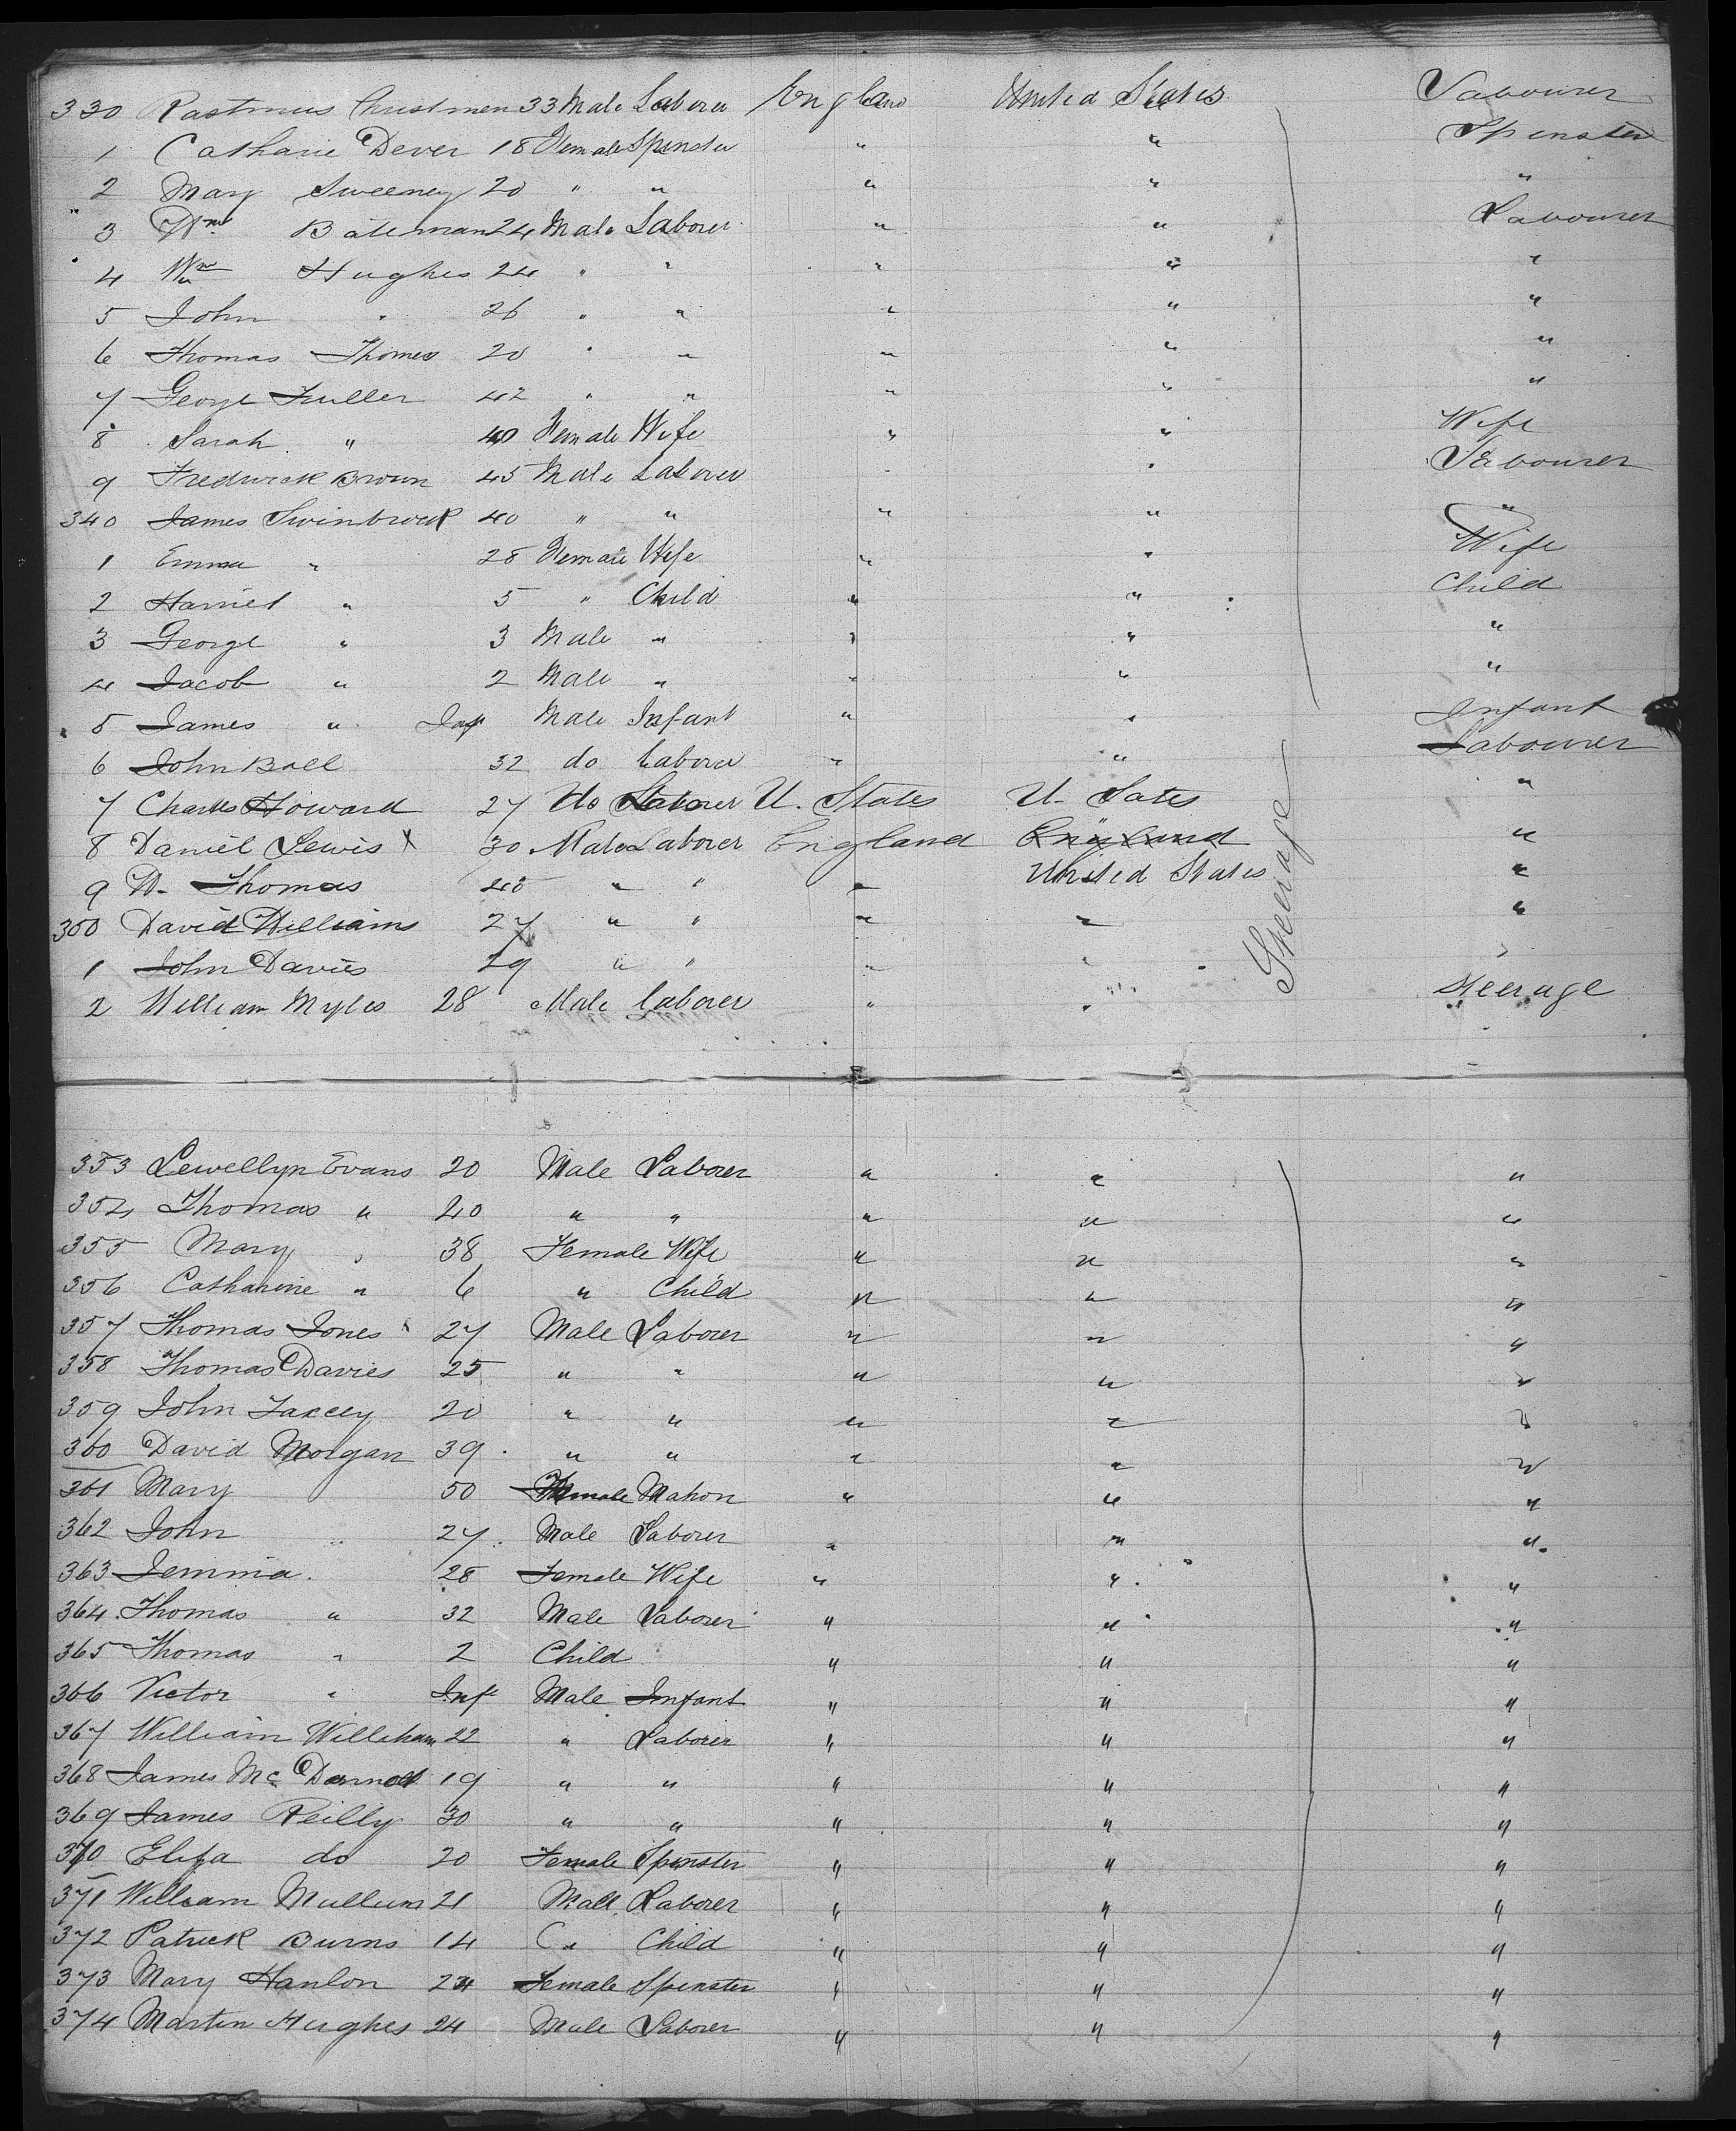 330 Rastmus Christmen 33 Male Laborer England United States Labourer
1 Catharie Dever 18 Female Spinster " " Spinster
2 Mary Sweeney 20 " " " " "
3 Wm Bateman 24 Male Laborer " " Labourer
4 Wm Hughes 24 " " " " "
5 John " 26 " " " " "
6 Thomas Thomes 20 " " " " "
7 George Fuller 42 " " " " "
8 Sarah " 40 Female Wife " " Wife
9 Fredwick Brown 45 Male Laborer " " Labourer
340 James Swinbrock 40 " " " " "
1 Emma " 28 Female Wife " " Wife
2 Harriet " 5 " Child " " Child
3 George " 3 Male " " " "
4 Jacob " 2 Male " " " "
5 James " Inf Male Infant " " Infant
6 John Ball 32 do Laborer " " Labourer
7 Charles Howard 27 do Laborer U. States U. Sates "
8 Daniel Lewis X 30 Male Laborer England England "
9 W. Thomas 45 " " " United States "
350 David Williams 27 " " " " "
1 John Davies 29 " " " " "
Steerage
2 William Myles 28 Male Laborer " " Steerage
353 Lewellyn Evans 20 Male Laborer " " "
354 Thomas " 40 " " " " "
355 Mary " 38 Female Wife " " "
356 Catharine " 6 " Child " " "
357 Thomas Jones 27 Male Laborer " " "
358 Thomas Davies 25 " " " " "
359 John 20 " " " " "
360 David Morgan 39 " " " " "
361 Mary 50 Female " " "
362 John " 27 Male Laborer " " "
363 Jemmia 28 Female Wife " " "
364 Thomas " 32 Male Laborer " " "
365 Thomas " 2 Child " " "
366 Victor " Inft Male Infant " " "
367 William Willham 22 " Laborer " " "
368 James Mc Dermott 19 " " " " "
369 James Reilly 30 " " " " "
370 Eliza do 20 Female Spinster " " "
371 William Mullins 21 Male Laborer " " "
372 Patrick Burns 14 " Child " " "
373 Mary Hanlon 24 Female Spinster " " "
374 Martin Hughes 24 Male Laborer " " "